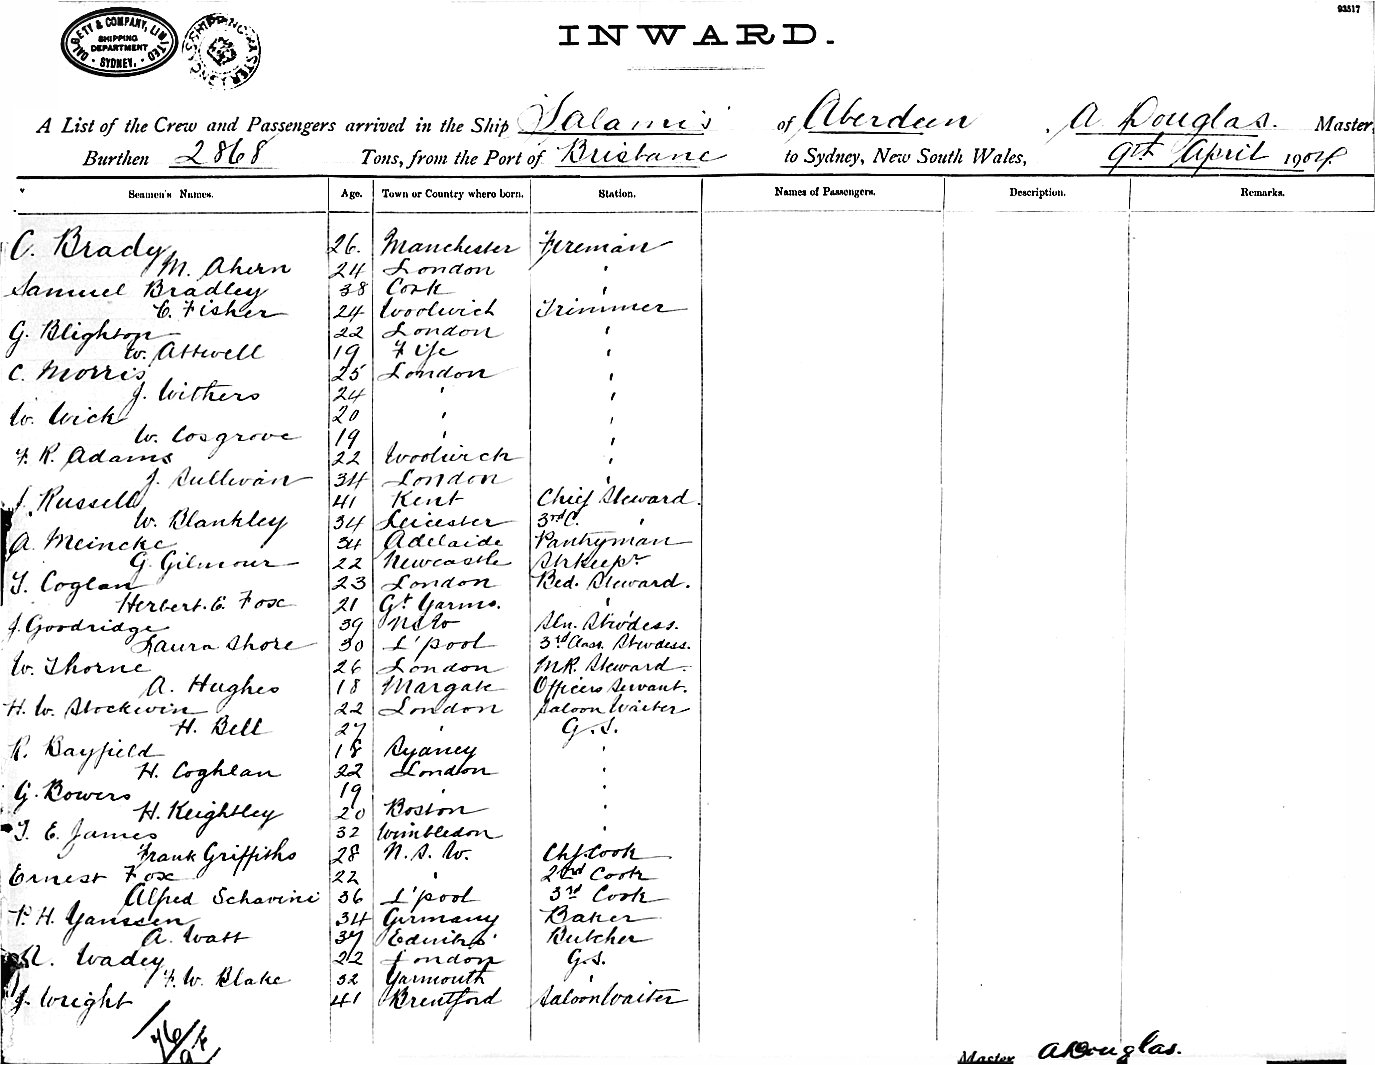 93517
DALGETY & COMPANY, LIMITED
SHIPPING DEPARTMENT
SYDNEY.
INWARD.
A List of the Crew and Passengers arrived in the Ship Salamis of Aberdeen, A Douglas. Master,
Burthen 2868 Tons, from the Port of Brisbane to Sydney, New South Wales, 9th April 1904.
Seamen's Names. Age. Town or Country where born. Station. Names of Passengers. Description. Remarks.
C. Brady 26. Manchester Fireman
M. Ahern 24 London "
Samuel Bradley 38 Cork "
C. Fisher 24 Woolwich Trimmer
G. Blighton 22 London "
W. Attwell 19 Fife "
C. Morris 25 London "
J. Withers 24 " "
W. Wick 20 " "
W. Cosgrove 19 " "
F. R. Adams 22 Woolwich "
J. Sullivan 34 London "
J. Russell 41 Kent Chief Steward.
W. Blankley 34 Leicester 3rd C. "
A. Meincke 34 Adelaide Pantryman
G. Gilmour 22 Newcastle Strkeepr
T. Coglan 23 London Bed. Steward.
Herbert. E. Fox 21 Gt. Yarms. "
J. Goodridge 39 NSW Sln. Stwdess.
Laura Shore 30 L'pool 3rd Class. Stwdess.
W. Thorne 26 London M.R. Steward
A. Hughes 18 Margate Officers Servant.
H. W. Stockwin 22 London Saloon Waiter
H. Bell 27 " G.S.
R. Bayfield 18 Sydney "
H. Coghlan 22 London "
G. Bowers 19 " "
H. Keightley 20 Boston "
T. E. James 32 Wimbledon "
Frank Griffiths 28 N.S.W. Chf. Cook
Ernest Fox 22 " 2nd Cook
Alfred Schavini 36 L'pool 3rd Cook
P. H. Yanssen 34 Germany Baker
A. Watt 37 Edinbro' Butcher
R. Wadey 22 London G.S.
F. W. Blake 32 Yarmouth "
J. Wright 41 Brentford Saloon Waiter
Master A Douglas.